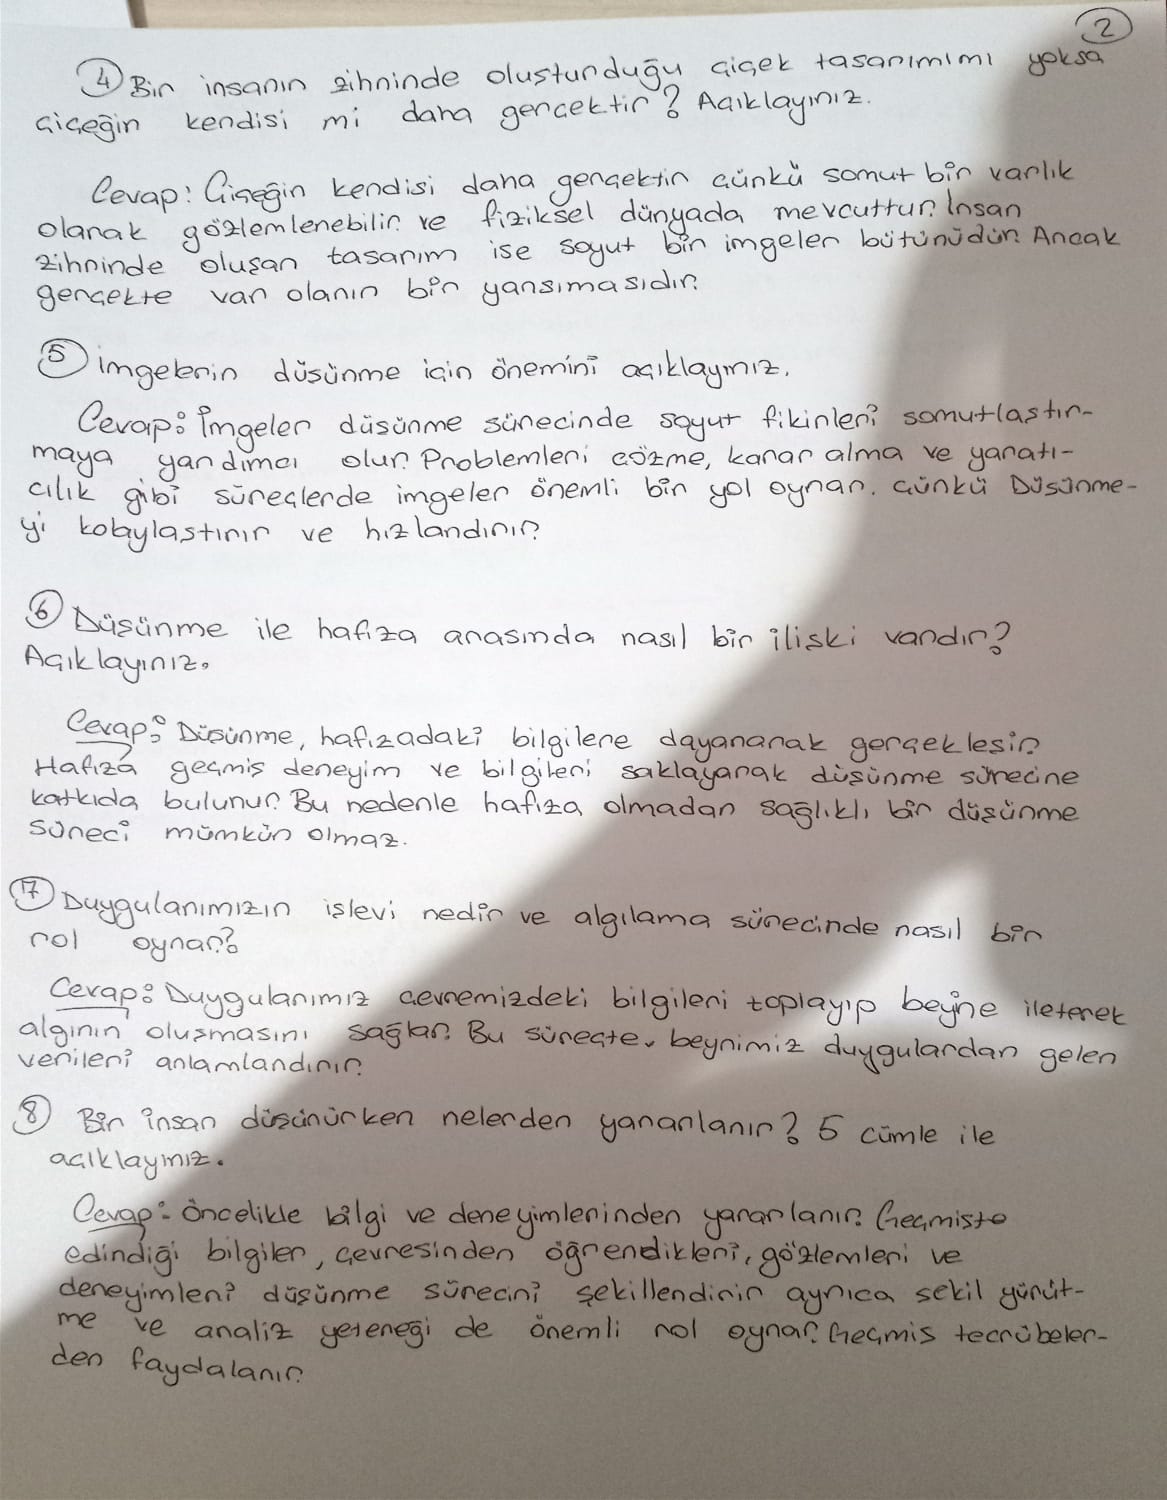 2
4 Bir insanın zihninde oluşturduğu çiçek tasarımımı yoksa
çiçeğin kendisi mi daha gerçektir? Açıklayınız.
Cevap: Çiçeğin kendisi daha gerçektir çünkü somut bir varlık
olarak gözlemlenebilir ve fiziksel dünyada mevcuttur. İnsan
zihninde oluşan tasarım ise soyut bir imgeler bütünüdür. Ancak
gerçekte var olanın bir yansımasıdır.
5 imgelerin düşünme için önemini açıklayınız.
Cevap: İmgeler düşünme sürecinde soyut fikirleri somutlaştır-
maya yardımcı olur. Problemleri çözme, karar alma ve yaratı-
cılık gibi süreçlerde imgeler önemli bir yol oynar. çünkü Düşünme-
yi kolaylaştırır ve hızlandırır.
6 Düşünme ile hafıza arasında nasıl bir ilişki vardır?
Açıklayınız.
Cevap: Düşünme, hafızadaki bilgilere dayanarak gerçekleşir.
Hafıza geçmiş deneyim ve bilgileri saklayarak düşünme sürecine
katkıda bulunur. Bu nedenle hafıza olmadan sağlıklı bir düşünme
süreci mümkün olmaz.
7 Duygularımızın işlevi nedir ve algılama sürecinde nasıl bir
rol oynar?
Cevap: Duygularımız çevremizdeki bilgileri toplayıp beyne ileterek
algının oluşmasını sağlar. Bu süreçte, beynimiz duygulardan gelen
verileri anlamlandırır.
8 Bir insan düşünürken nelerden yararlanır? 5 cümle ile
açıklayınız.
Cevap: Öncelikle bilgi ve deneyimlerinden yararlanır. Geçmişte
edindiği bilgiler, çevresinden öğrendikleri, gözlemleri ve
deneyimleri düşünme sürecini şekillendirir ayrıca şekil yürüt-
me ve analiz yeteneği de önemli rol oynar. Geçmiş tecrübeler-
den faydalanır.